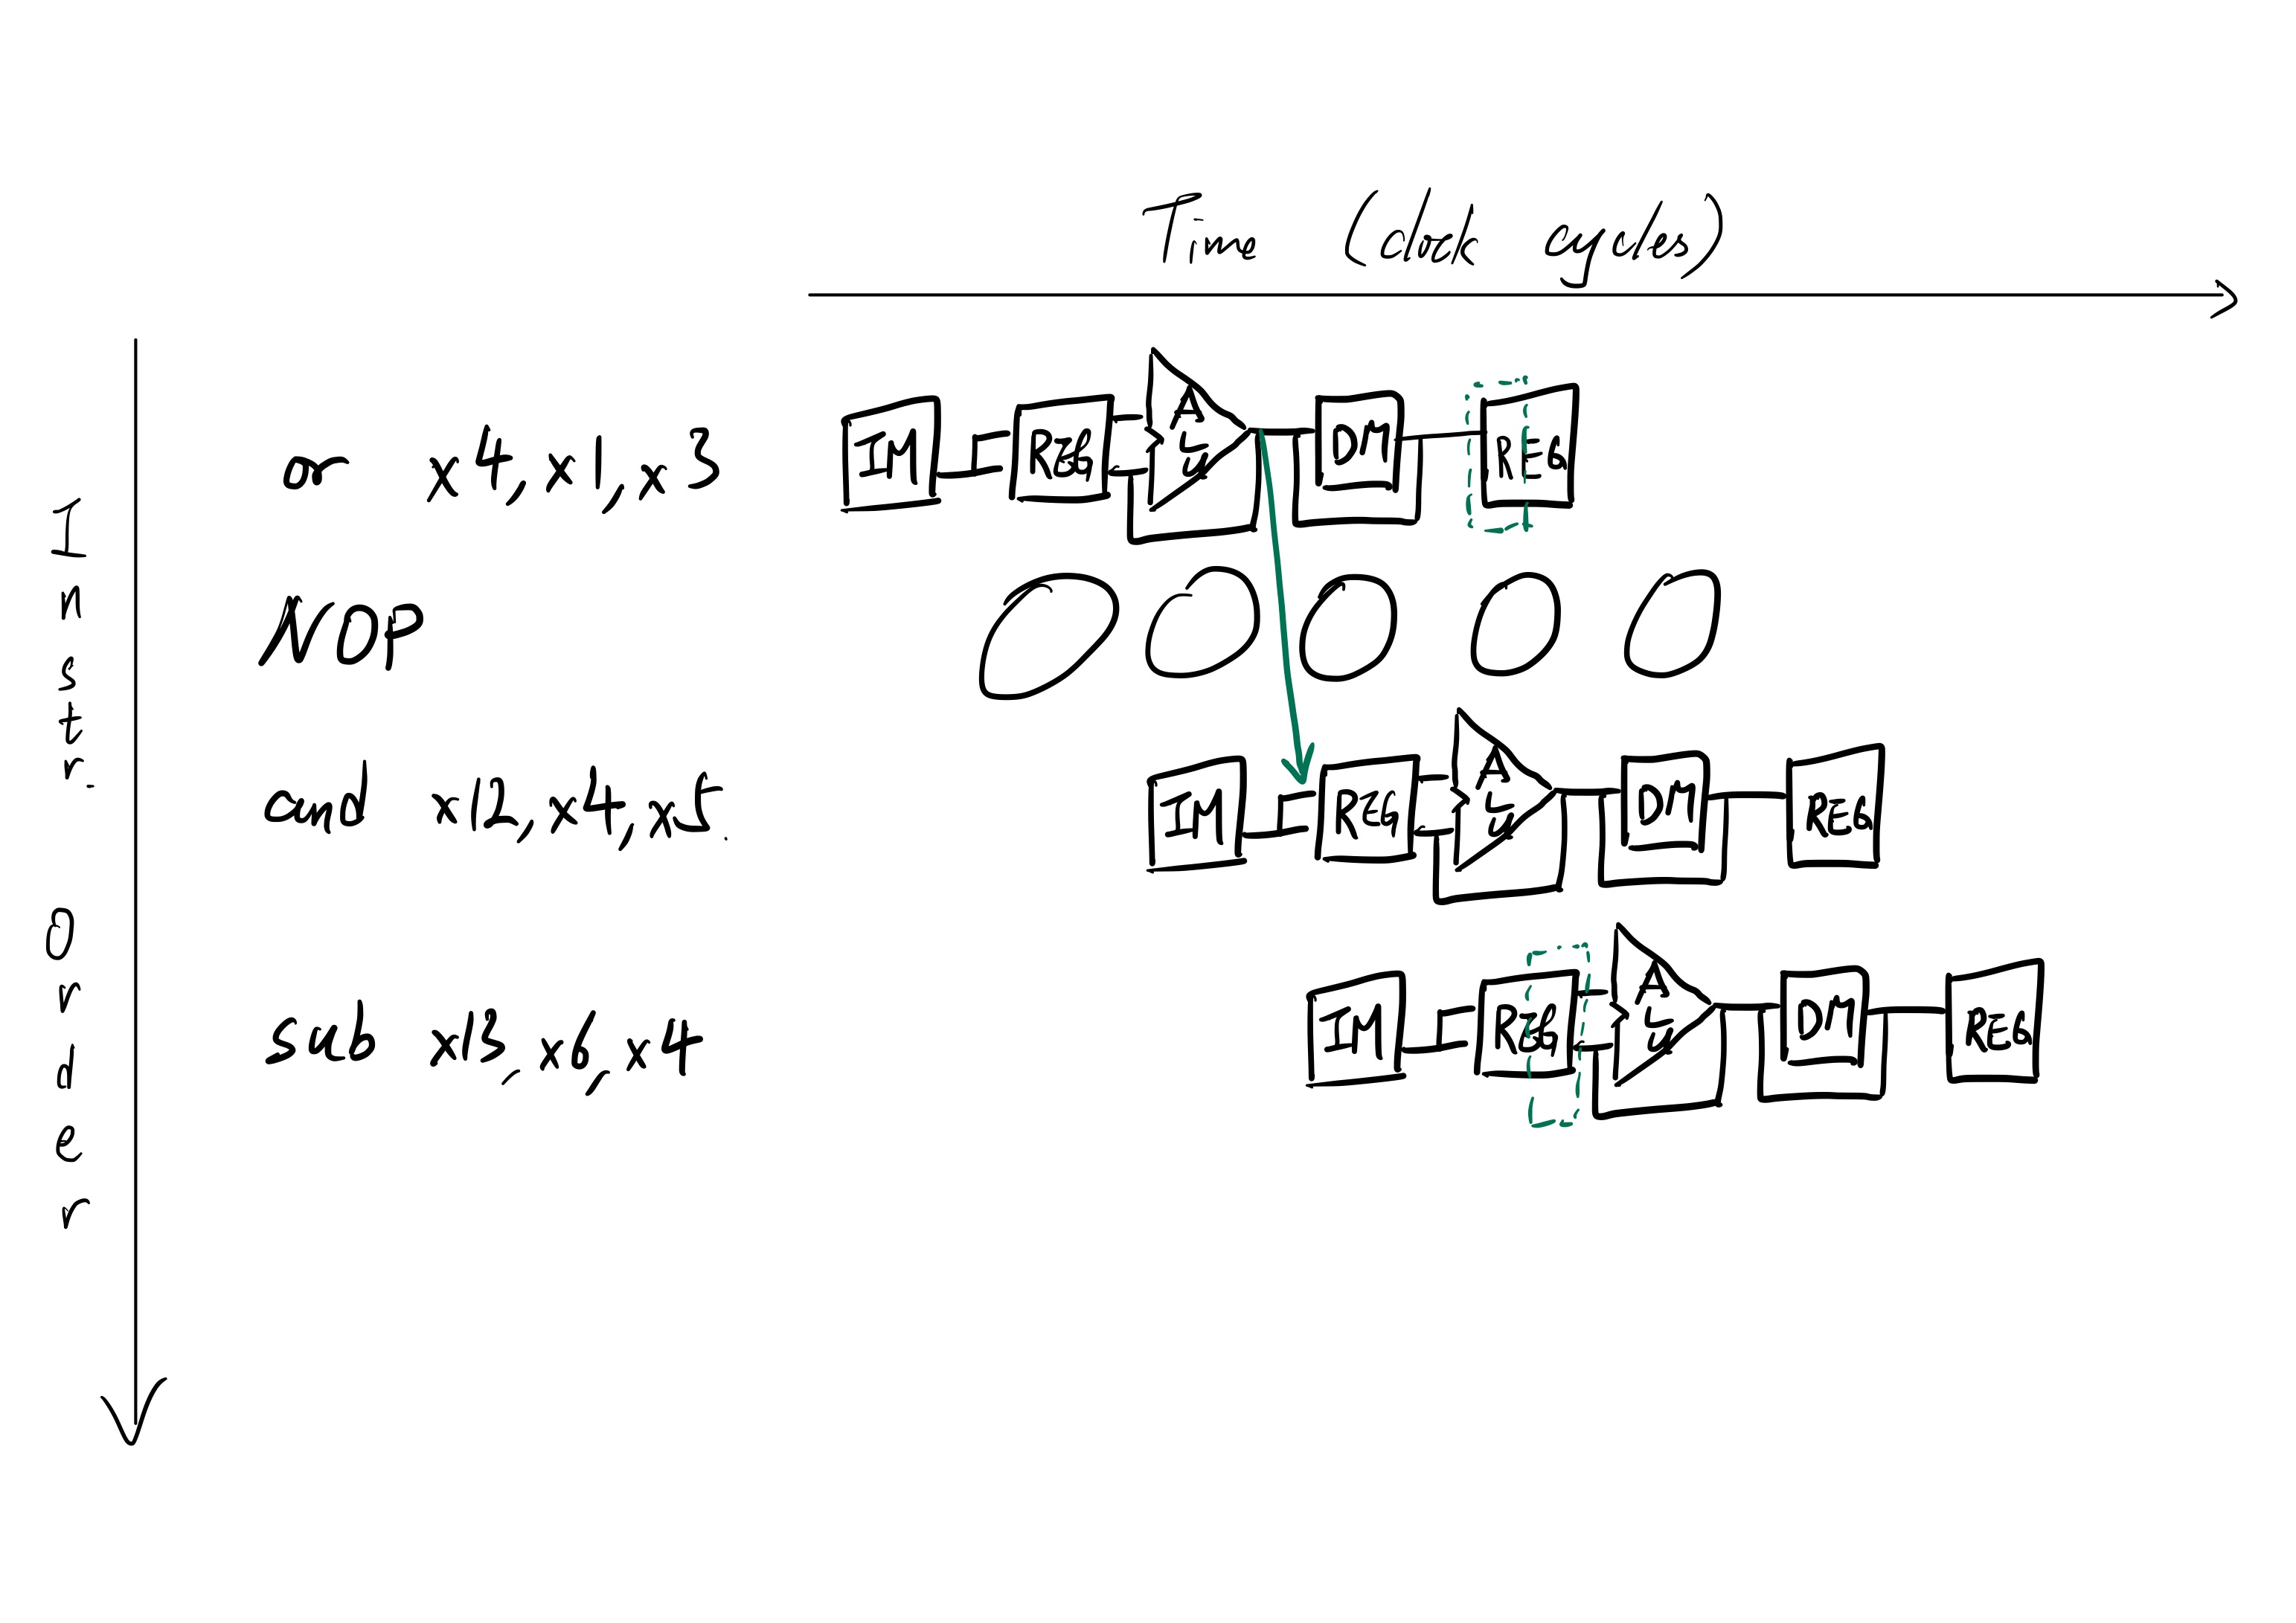 Time (clock cycles)
Instr. Order
or x4, x1, x3
IM REG ALU DM REG
NOP
and x12, x4, x5
IM REG ALU DM REG
sub x13, x6, x4
IM REG ALU DM REG